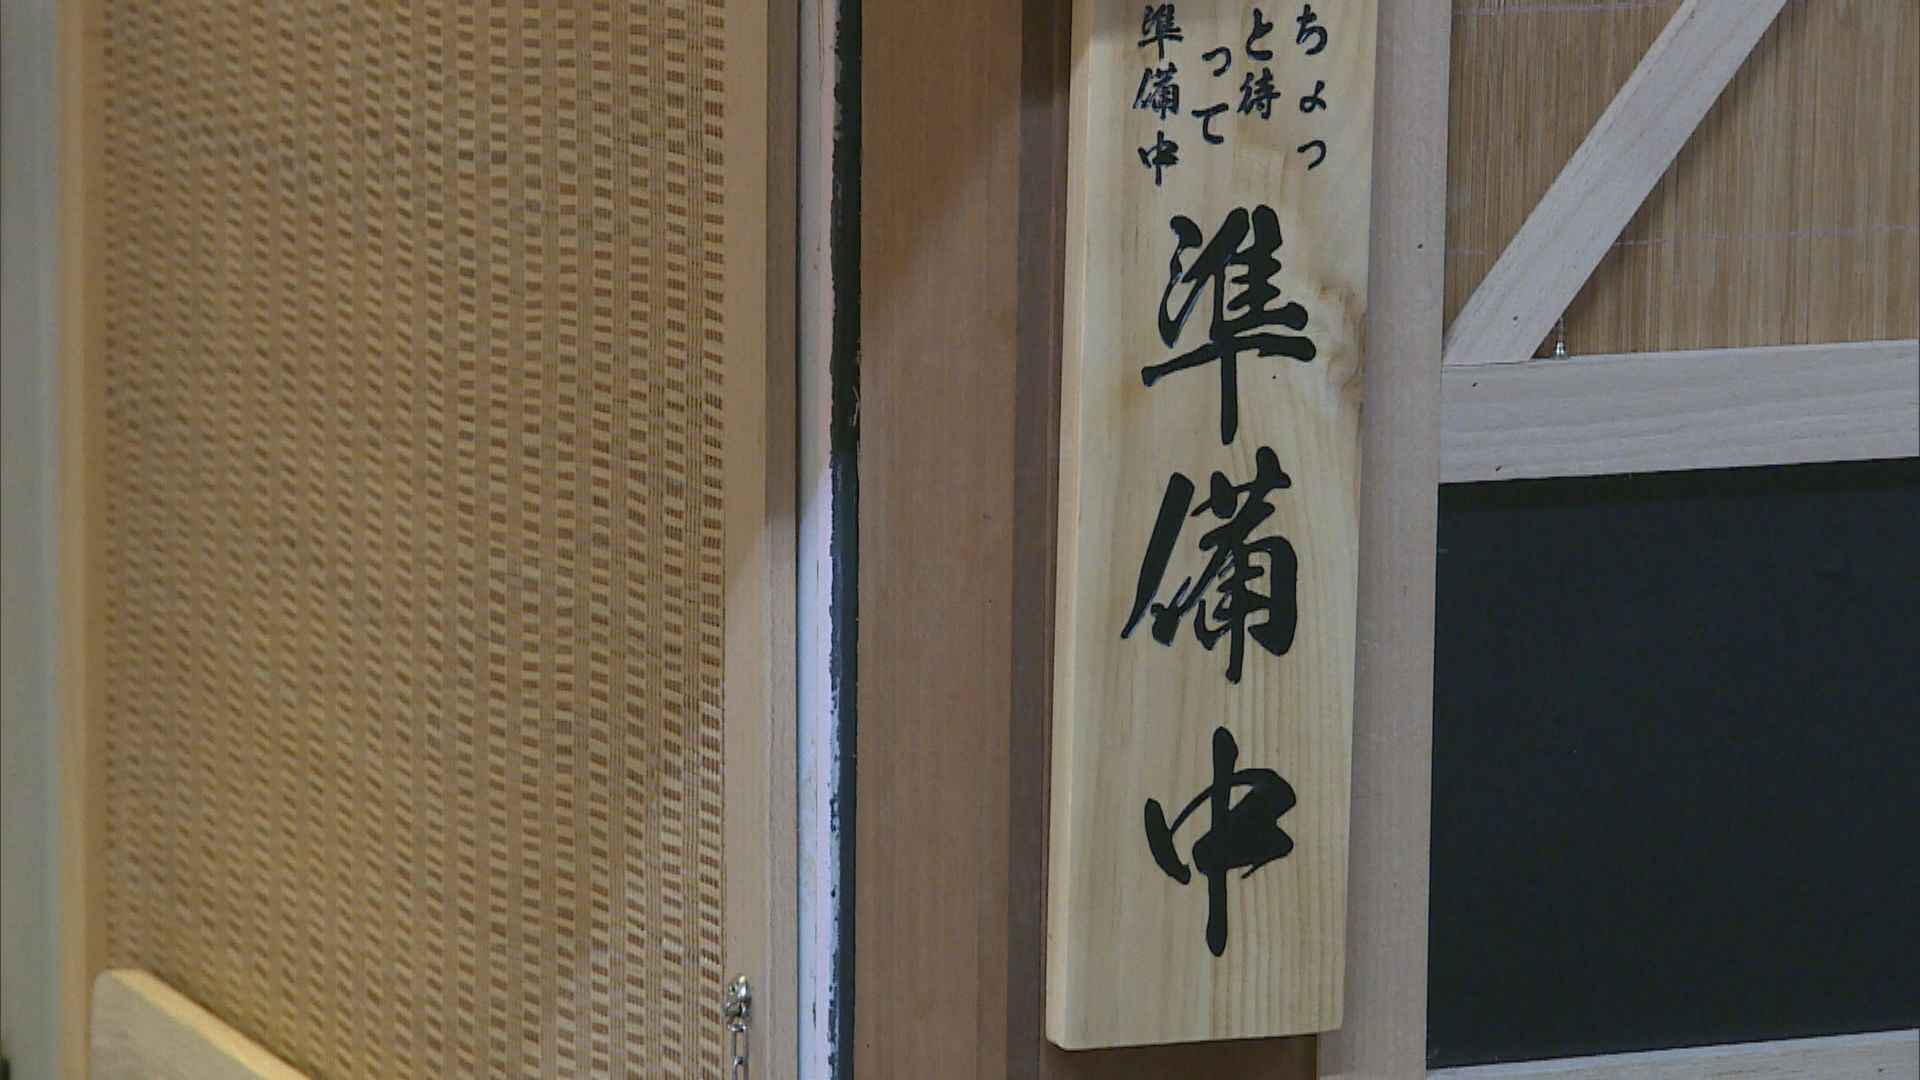 ちょっ
と待
って
準備中
準備中